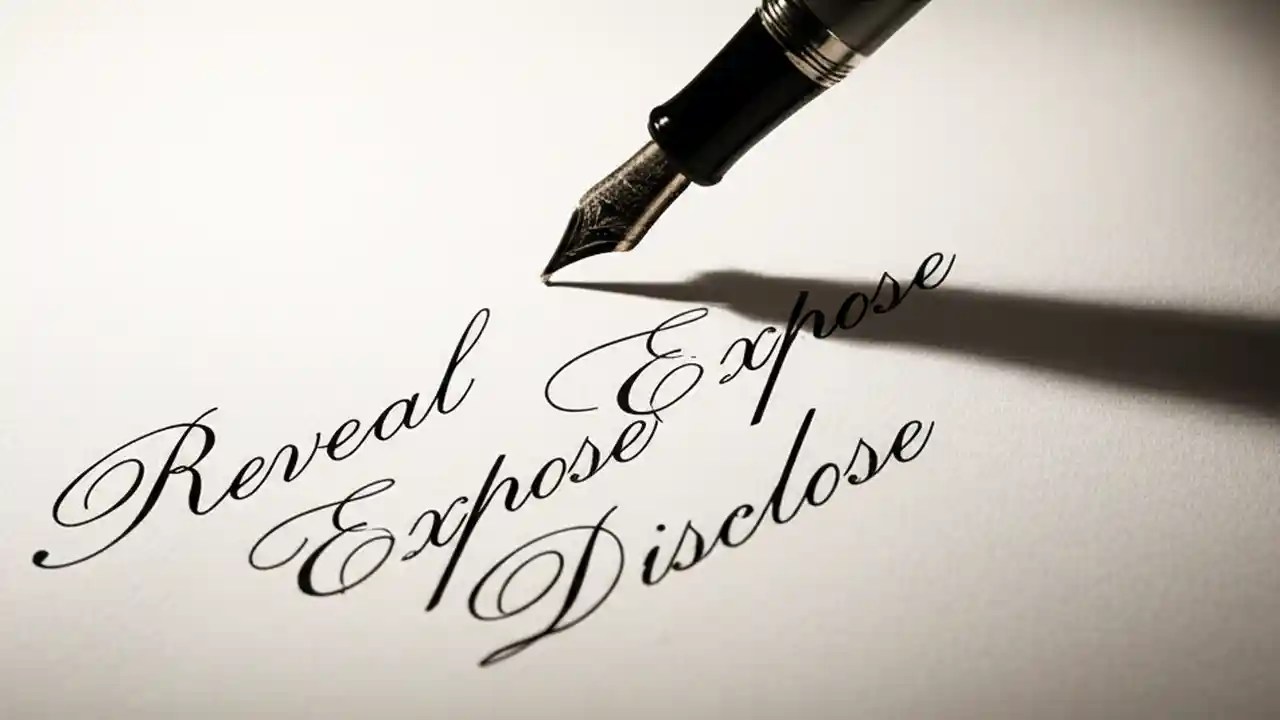 Reveal Expose
Expose
Disclose